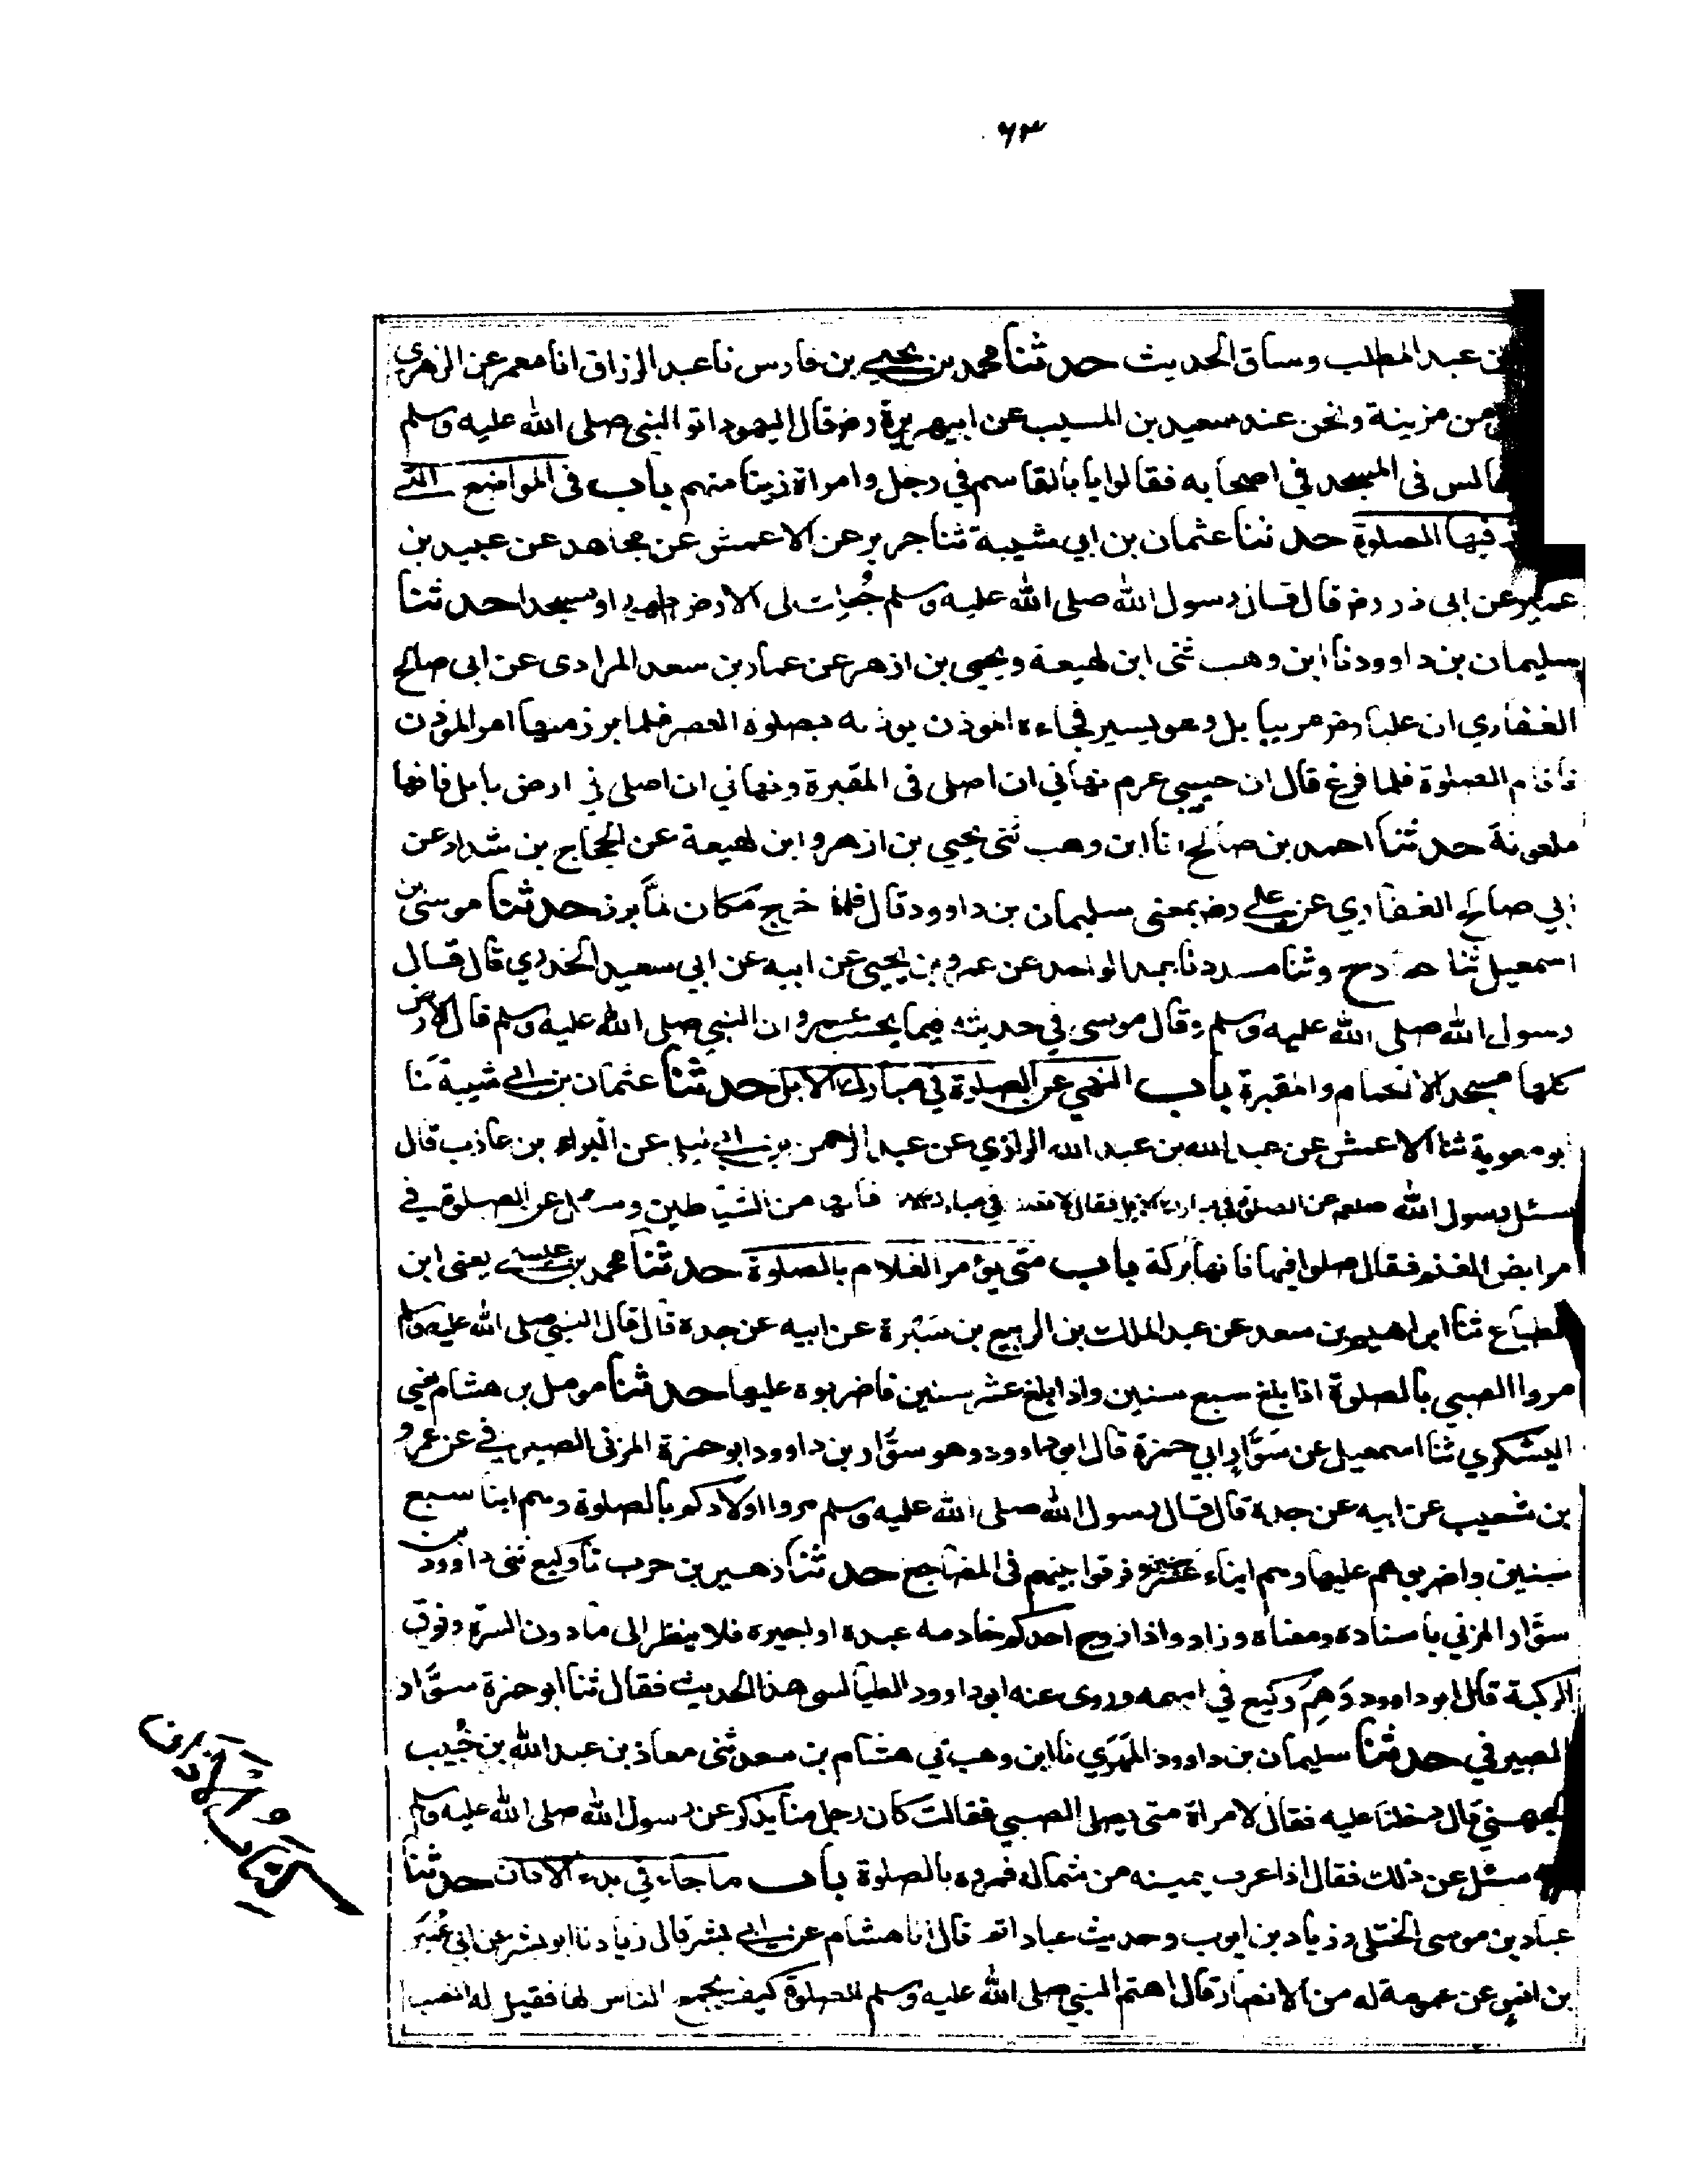 ٦٣
بن عبد المطلب وساق الحديث حدثنا محمد بن يحيى بن فارس نا عبد الرزاق انا معمر عن الزهري
من مزينة ونحن عند سعيد بن المسيب عن ابي هريرة رض قال اليهود اتو النبي صلى الله عليه وسلم
جالس في المسجد في اصحابه فقالوا يا باالقاسم في رجل وامراة زنيا منهم باب في المواضع التي
فيها الصلوة حدثنا عثمان بن ابي شيبة ثنا جرير عن الاعمش عن مجاهد عن عبيد بن
عمير عن ابي ذر رض قال قال رسول الله صلى الله عليه وسلم جُعِلت لي الارض طهورا ومسجدا حدثنا
سليمان بن داوود نا ابن وهب ثنى ابن لهيعة ويحيى بن ازهر عن عمار بن سعد المرادى عن ابى صالح
الغفاري ان عليا رض مر ببابل وهو يسير فجاءه الموذن يوذنه بصلوة العصر فلما برز منها امر الموذن
فاقام الصلوة فلما فرغ قال ان حبيبي عرم نهاني ان اصلى فى المقبرة ونهاني ان اصلى في ارض بابل فانها
ملعونة حدثنا احمد بن صالح انا ابن وهب ثنى يحيى بن ازهر وابن لهيعة عن الحجاج بن شداد عن
ابي صالح الغفاري عن علي رض بمعنى سليمان بن داوود قال فلما خرج مَكان لمَّا برز حدثنا موسى بن
اسمعيل ثنا حماد ح وثنا مسدد نا عبد الواحد عن عمرو بن يحيى عن ابيه عن ابي سعيد الخدري قال قال
رسول الله صلى الله عليه وسلم وقال موسى في حديثه فيما يحسب عمرو ان النبي صلى الله عليه وسلم قال الارض
كلها مسجد الا الحمام والمقبرة باب النهي عن الصلوة في مبارك الابل حدثنا عثمان بن ابي شيبة نا
ابو معوية ثنا الاعمش عن عبد الله بن عبد الله الرازي عن عبد الرحمن بن ابي ليلى عن البراء بن عاذب قال
سئل رسول الله صلعم عن الصلوة في مبارك الابل فقال لا تصلوا في مبارك الابل فانها من الشياطين وسئل عن الصلوة في
مرابض الغنم فقال صلوا فيها فانها بركة باب متى يؤمر الغلام بالصلوة حدثنا محمد بن عيسى يعنى ابن
الطباع ثنا ابراهيم بن سعد عن عبد الملك بن الربيع بن سَبْرة عن ابيه عن جده قال قال النبي صلى الله عليه وسلم
مروا الصبي بالصلوة اذا بلغ سبع سنين واذا بلغ عشر سنين فاضربوه عليها حدثنا مومل بن هشام يعني
اليشكري ثنا اسمعيل عن سَوَّارِ ابي حمزة قال ابو داوود وهو سوَّار بن داوود ابو حمزة المزنى الصيرفي عن عمرو
بن شعيب عن ابيه عن جده قال قال رسول الله صلى الله عليه وسلم مروا اولادكم بالصلوة وهم ابنا سبع
سنين واضربوهم عليها وهم ابناء عشر وفرقوا بينهم فى المضاجع حدثنا زهير بن حرب نا وكيع ثنى داوود بن
سوَّار المزني باسناده ومعناه وزاد واذا زوج احدكم خادمه عبده او اجيره فلا ينظر الى ما دون السرة وفوق
الركبة قال ابو داوود وَهِمَ وكيع في اسمه وروى عنه ابو داوود الطيالسى هذا الحديث فقال ثنا ابو حمزة سوَّار
الصيرفي حدثنا سليمان بن داوود المَهَرَي نا ابن وهب ثني هشام بن سعد ثنى معاذ بن عبد الله بن خُبيب
الجهني قال دخلنا عليه فقال لامراة متى يصلى الصبي فقالت كان رجل منا يذكر عن رسول الله صلى الله عليه وسلم
سئل عن ذلك فقال اذا عرف يمينه من شماله فمروه بالصلوة باب ما جاء في بدء الاذان حدثنا
عباد بن موسى الختلى وزياد بن ايوب وحديث عباد اتم قال انا هشام عن ابي بشر قال زياد نا ابو بشر عن ابي عُمَير
بن انس عن عمومة له من الانصار قال اهتم النبي صلى الله عليه وسلم للصلوة كيف يجمع الناس لها فقيل له انصب